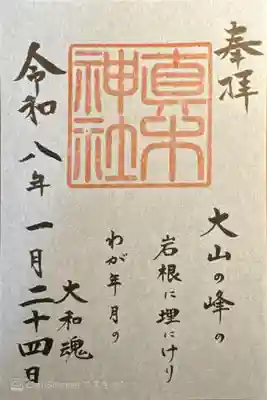 奉拝
大山の峰の
岩根に埋にけり
わが年月の
大和魂
眞木
神社
令和八年一月二十四日